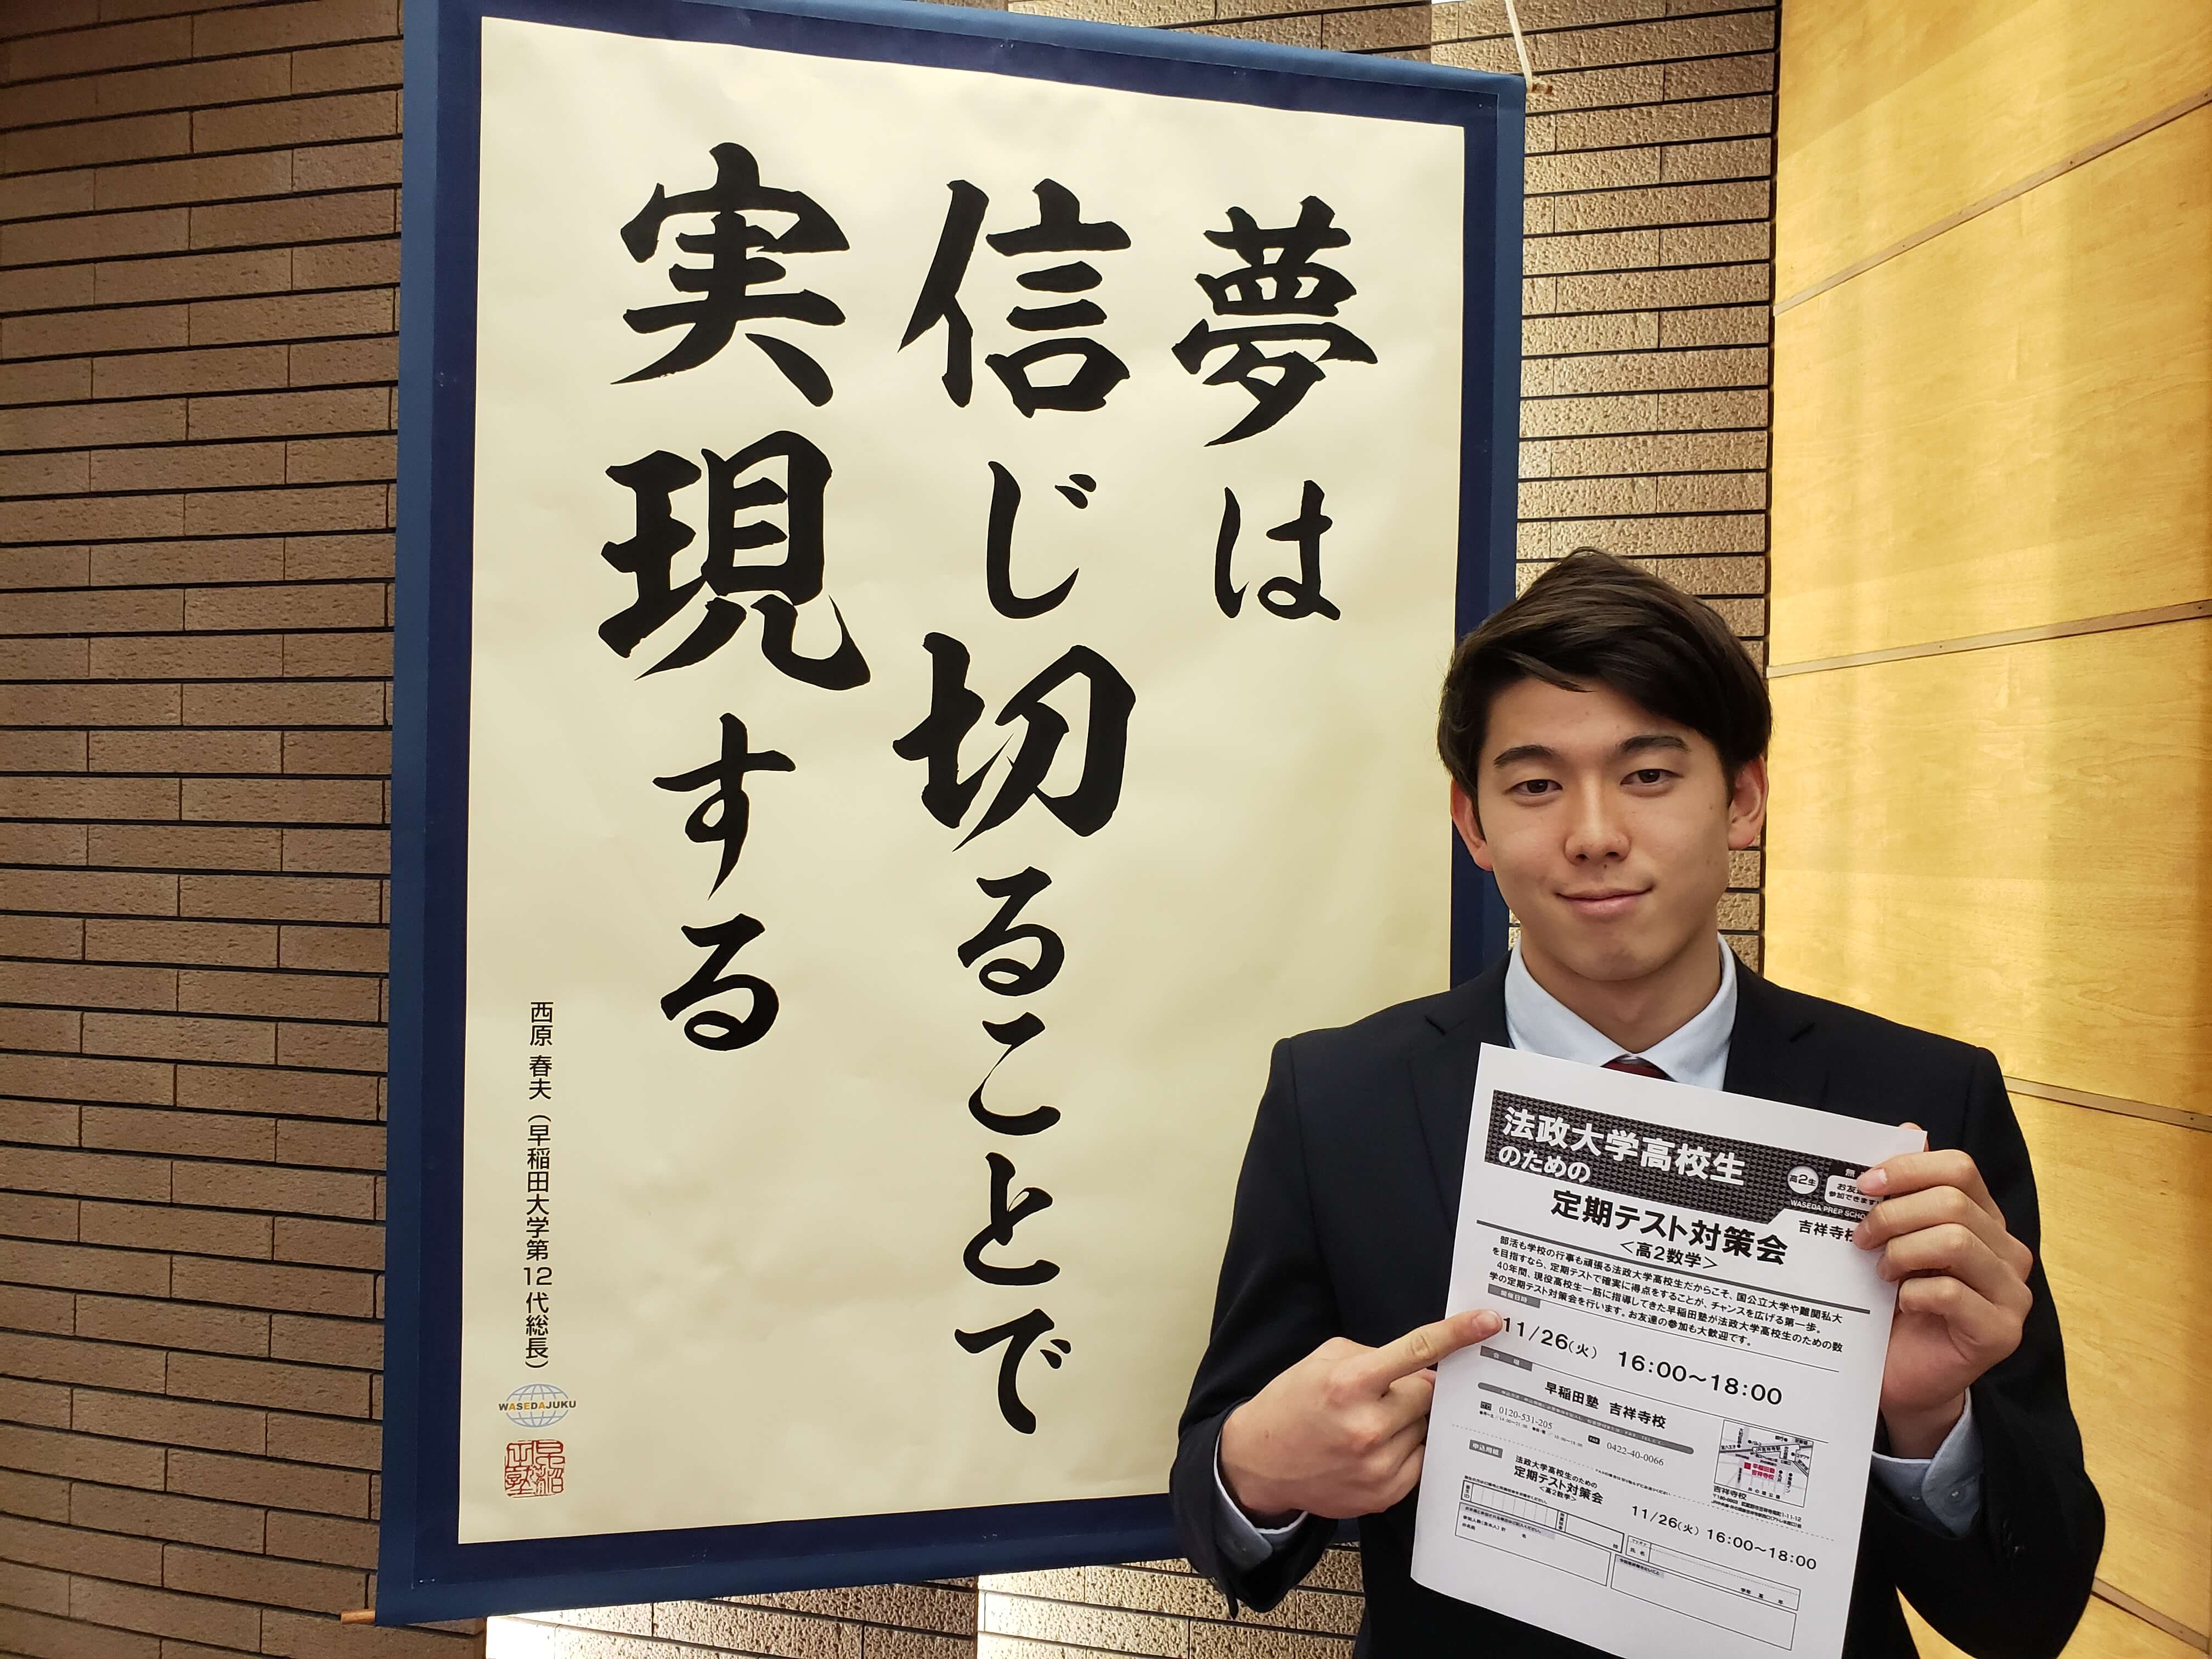 夢は
信じ切ることで
実現する
西原 春夫（早稲田大学第12代総長）
WASEDAJUKU
早稲田塾
法政大学高校生
のための
高2生
参加できます
WASEDA PREP SCHO
定期テスト対策会
吉祥寺校
＜高2数学＞
部活も学校の行事も頑張る法政大学高校生だからこそ、国公立大学や難関私大
を目指すなら、定期テストで確実に得点をすることが、チャンスを広げる第一歩。
40年間、現役高校生一筋に指導してきた早稲田塾が法政大学高校生のための数
学の定期テスト対策会を行います。お友達の参加も大歓迎です。
開催日時
11/26(火) 16:00～18:00
会 場
早稲田塾 吉祥寺校
0120-531-205
0422-40-0066
早稲田塾
吉祥寺校
吉祥寺校
申込用紙
法政大学高校生のための
定期テスト対策会
＜高2数学＞
11/26(火) 16:00～18:00